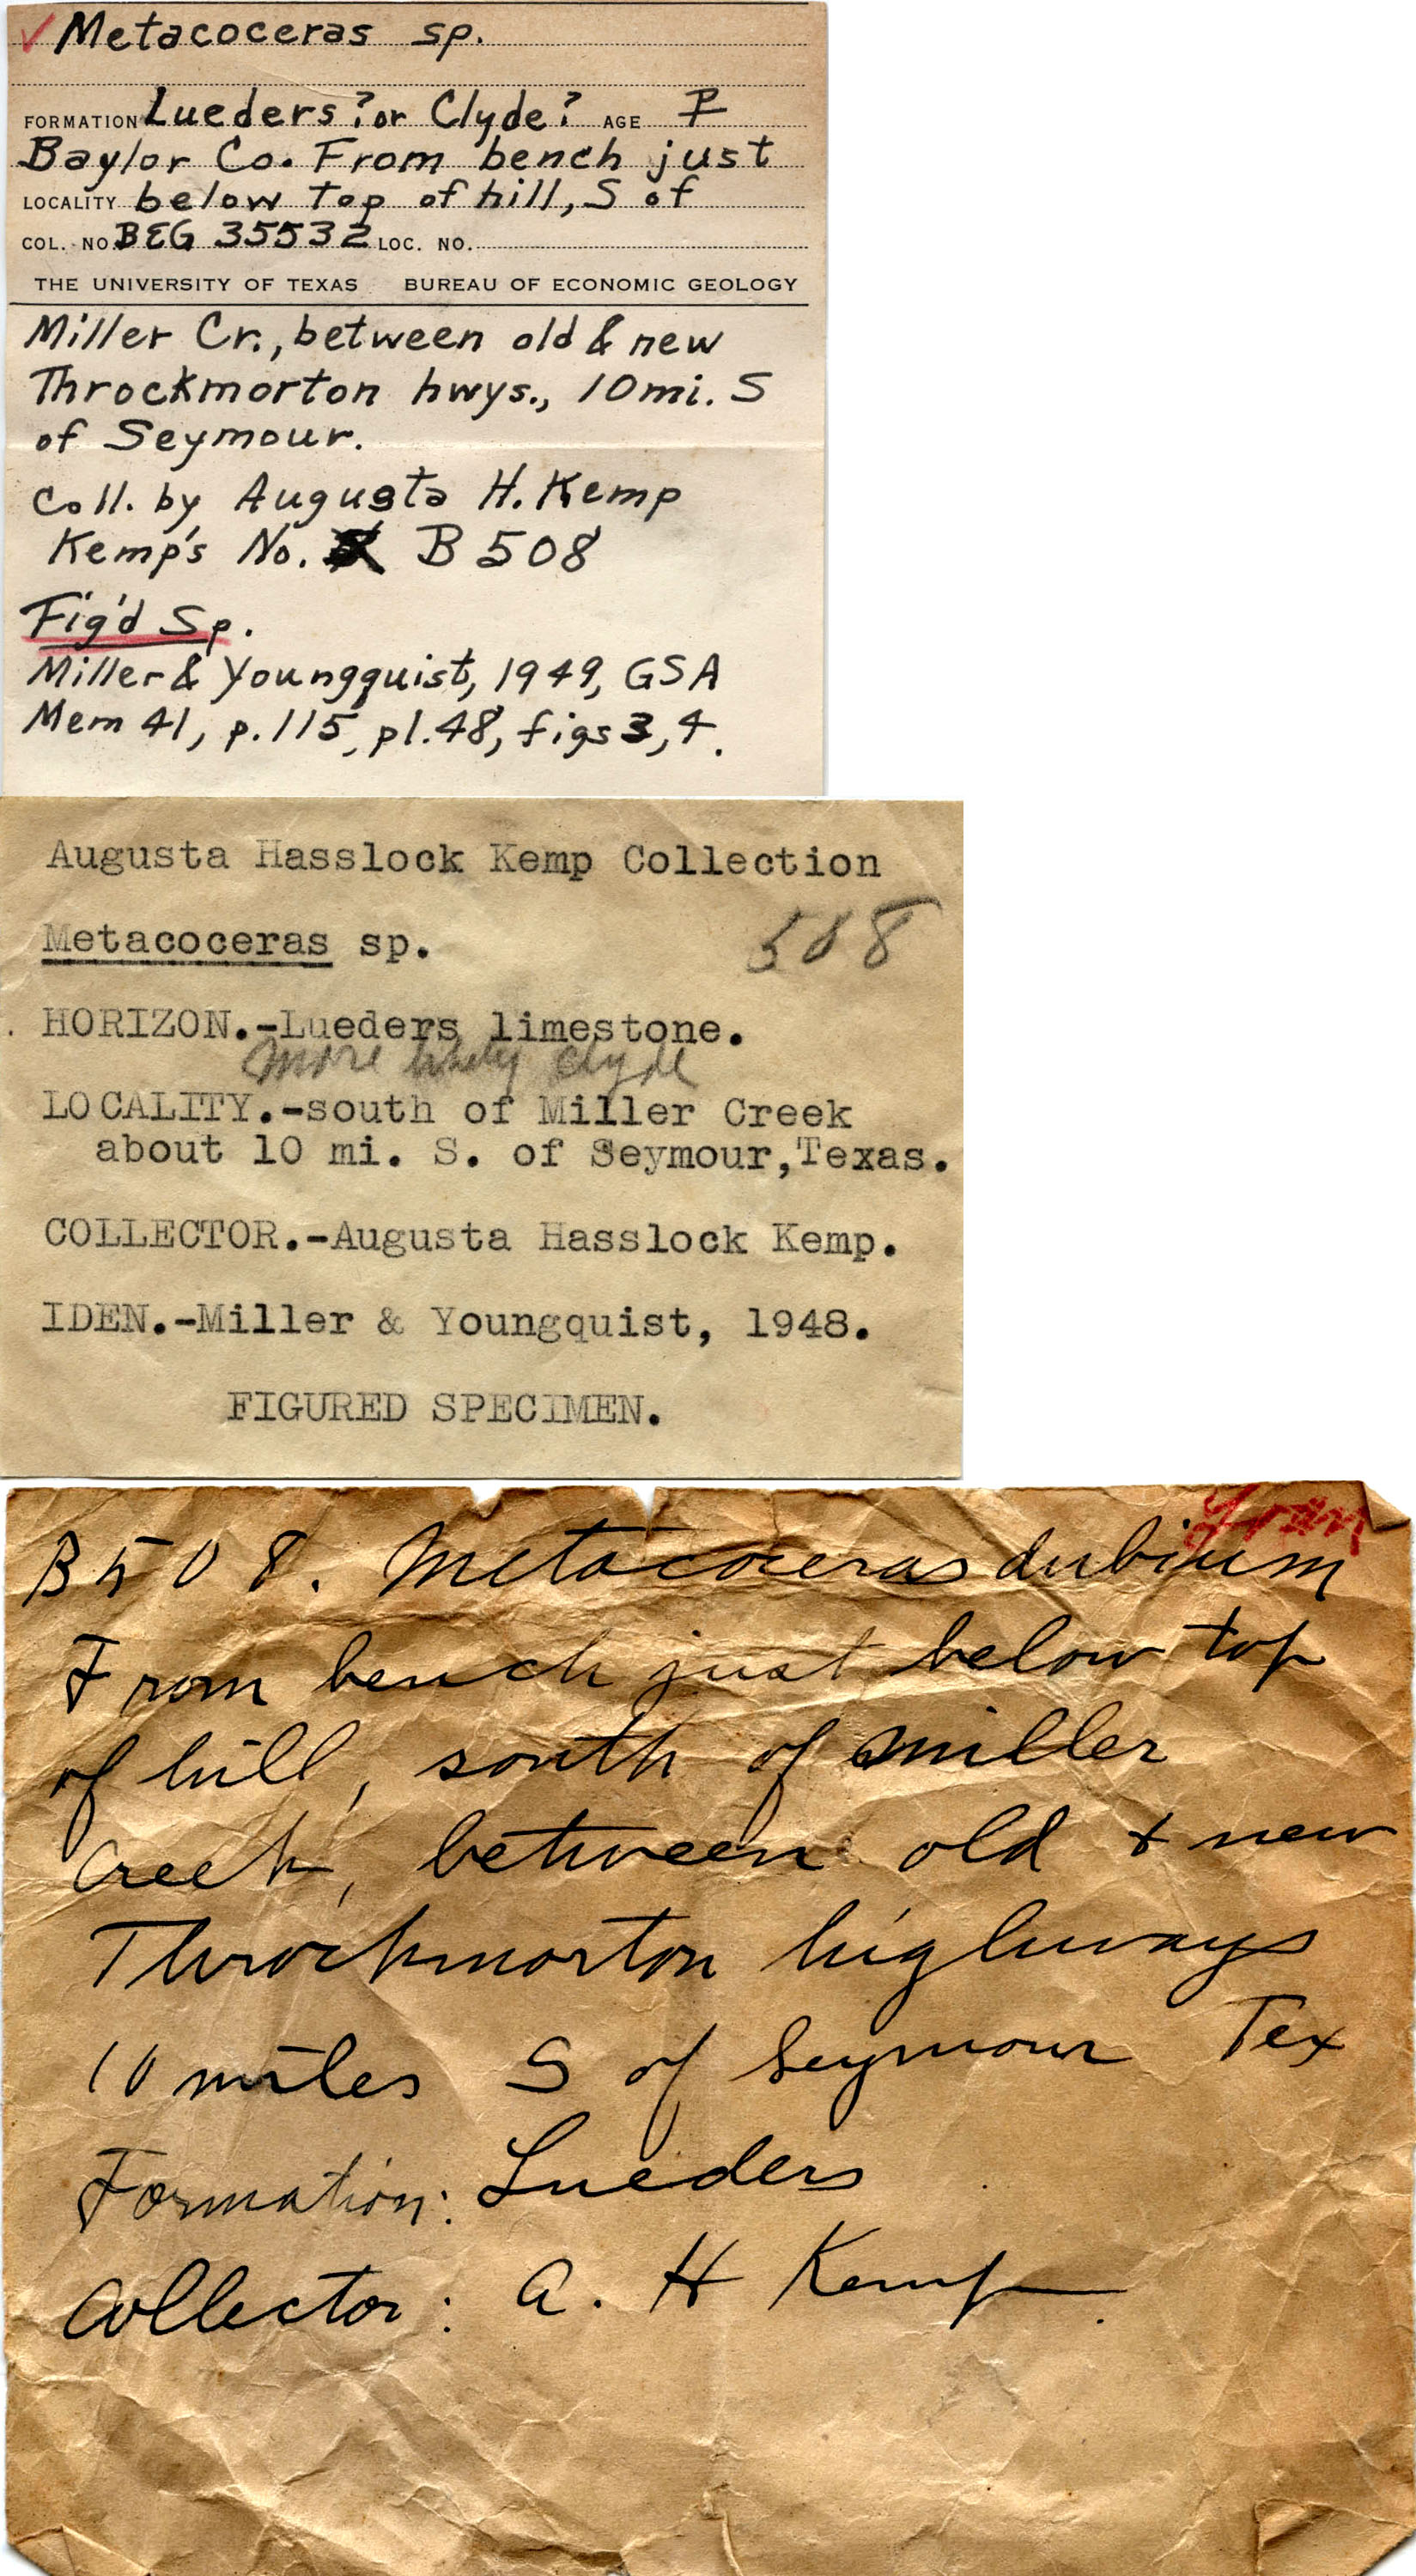 ✓ Metacoceras sp.
FORMATION Lueders? or Clyde? AGE P
Baylor Co. From bench just
LOCALITY below top of hill, S of
COL. NO. BEG 35532 LOC. NO.
THE UNIVERSITY OF TEXAS BUREAU OF ECONOMIC GEOLOGY
Miller Cr., between old & new
Throckmorton hwys., 10 mi. S
of Seymour.
Coll. by Augusta H. Kemp
Kemp's No. B 508
Fig'd Sp.
Miller & Youngquist, 1949, GSA
Mem 41, p. 115, pl. 48, figs 3, 4.
Augusta Hasslock Kemp Collection
Metacoceras sp. 508
HORIZON.-Lueders limestone.
More likely Clyde
LOCALITY.-south of Miller Creek
about 10 mi. S. of Seymour, Texas.
COLLECTOR.-Augusta Hasslock Kemp.
IDEN.-Miller & Youngquist, 1948.
FIGURED SPECIMEN.
B508. Metacoceras dubium
From bench just below top
of hill, south of Miller
Creek, between old + new
Throckmorton highways
10 miles S of Seymour Tex
Formation: Lueders
Collector: A. H Kemp.